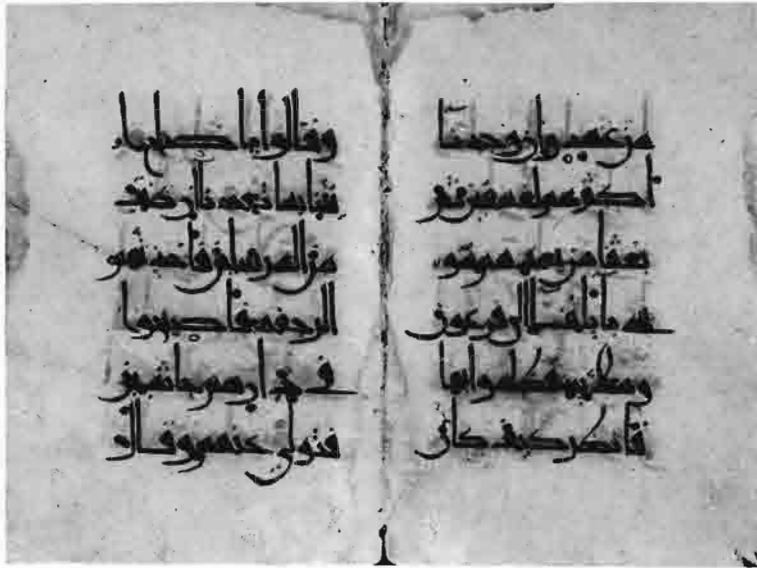 من عهد وان وجدنا
اكثرهم لفسقين ثم
بعثنا من بعدهم موسى
بايتنا الى فرعون
وملايه فظلموا بها
فانظر كيف كان
وقالوا يا صلح ا
ئتنا بما تعدنا ان كنت
من المرسلين فاخذتهم
الرجفة فاصبحوا
في دارهم جاثمين
فتولى عنهم وقال